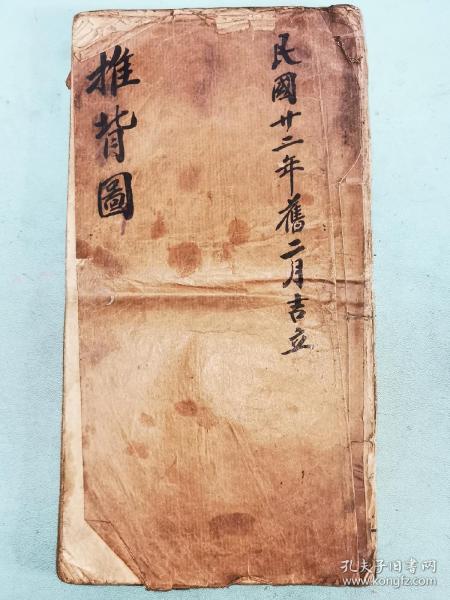 民國廿二年舊二月吉立
推背圖
孔夫子旧书网
www.kongfz.com